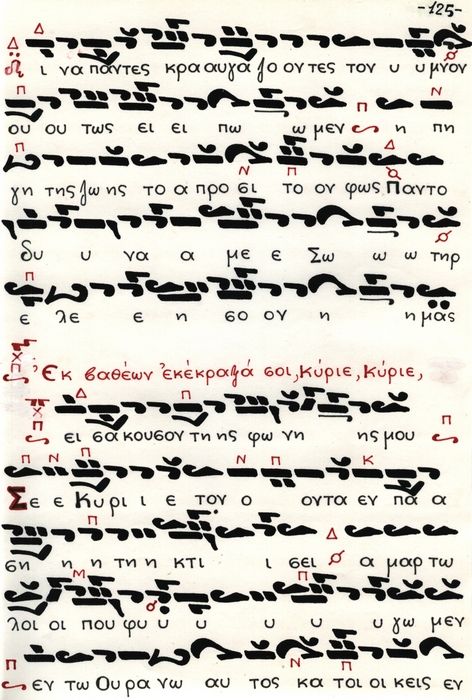 -125-
ι να παντες κρα αυγα ζο ον τες τον υ υ μνον
ου ου τως ει ει πω ω μεν η πη
γη της ζω ης το α προ σι το ον φως Παντο
δυ υ να α με ε Σω ω ω τηρ
ε λε ε η σο ον η η μας
Ἐκ βαθέων ἐκέκραξά σοι, Κύριε, Κύριε,
ει σα κου σον τη ης φω νη ης μου
Σε ε Κυ ρι ι ε τον ο οντα εν πα α
ση η η τη κτι ι σει α μαρ τω
λοι οι που φυ υ υ υ υ γω μεν
εν τω Ου ρα νω αυ τος κα τοι οι κεις εν